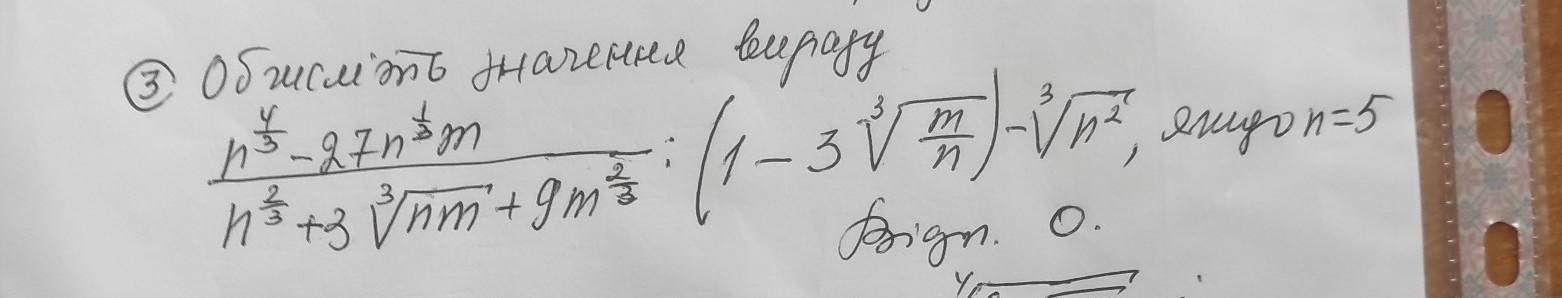 ③ Обчисліть значення виразу
(n^{4/3} − 27n^{1/3}m)/(n^{2/3} + 3∛(nm) + 9m^{2/3}) : (1 − 3∛(m/n)) − ∛(n²), якщо n=5
Відп. 0.